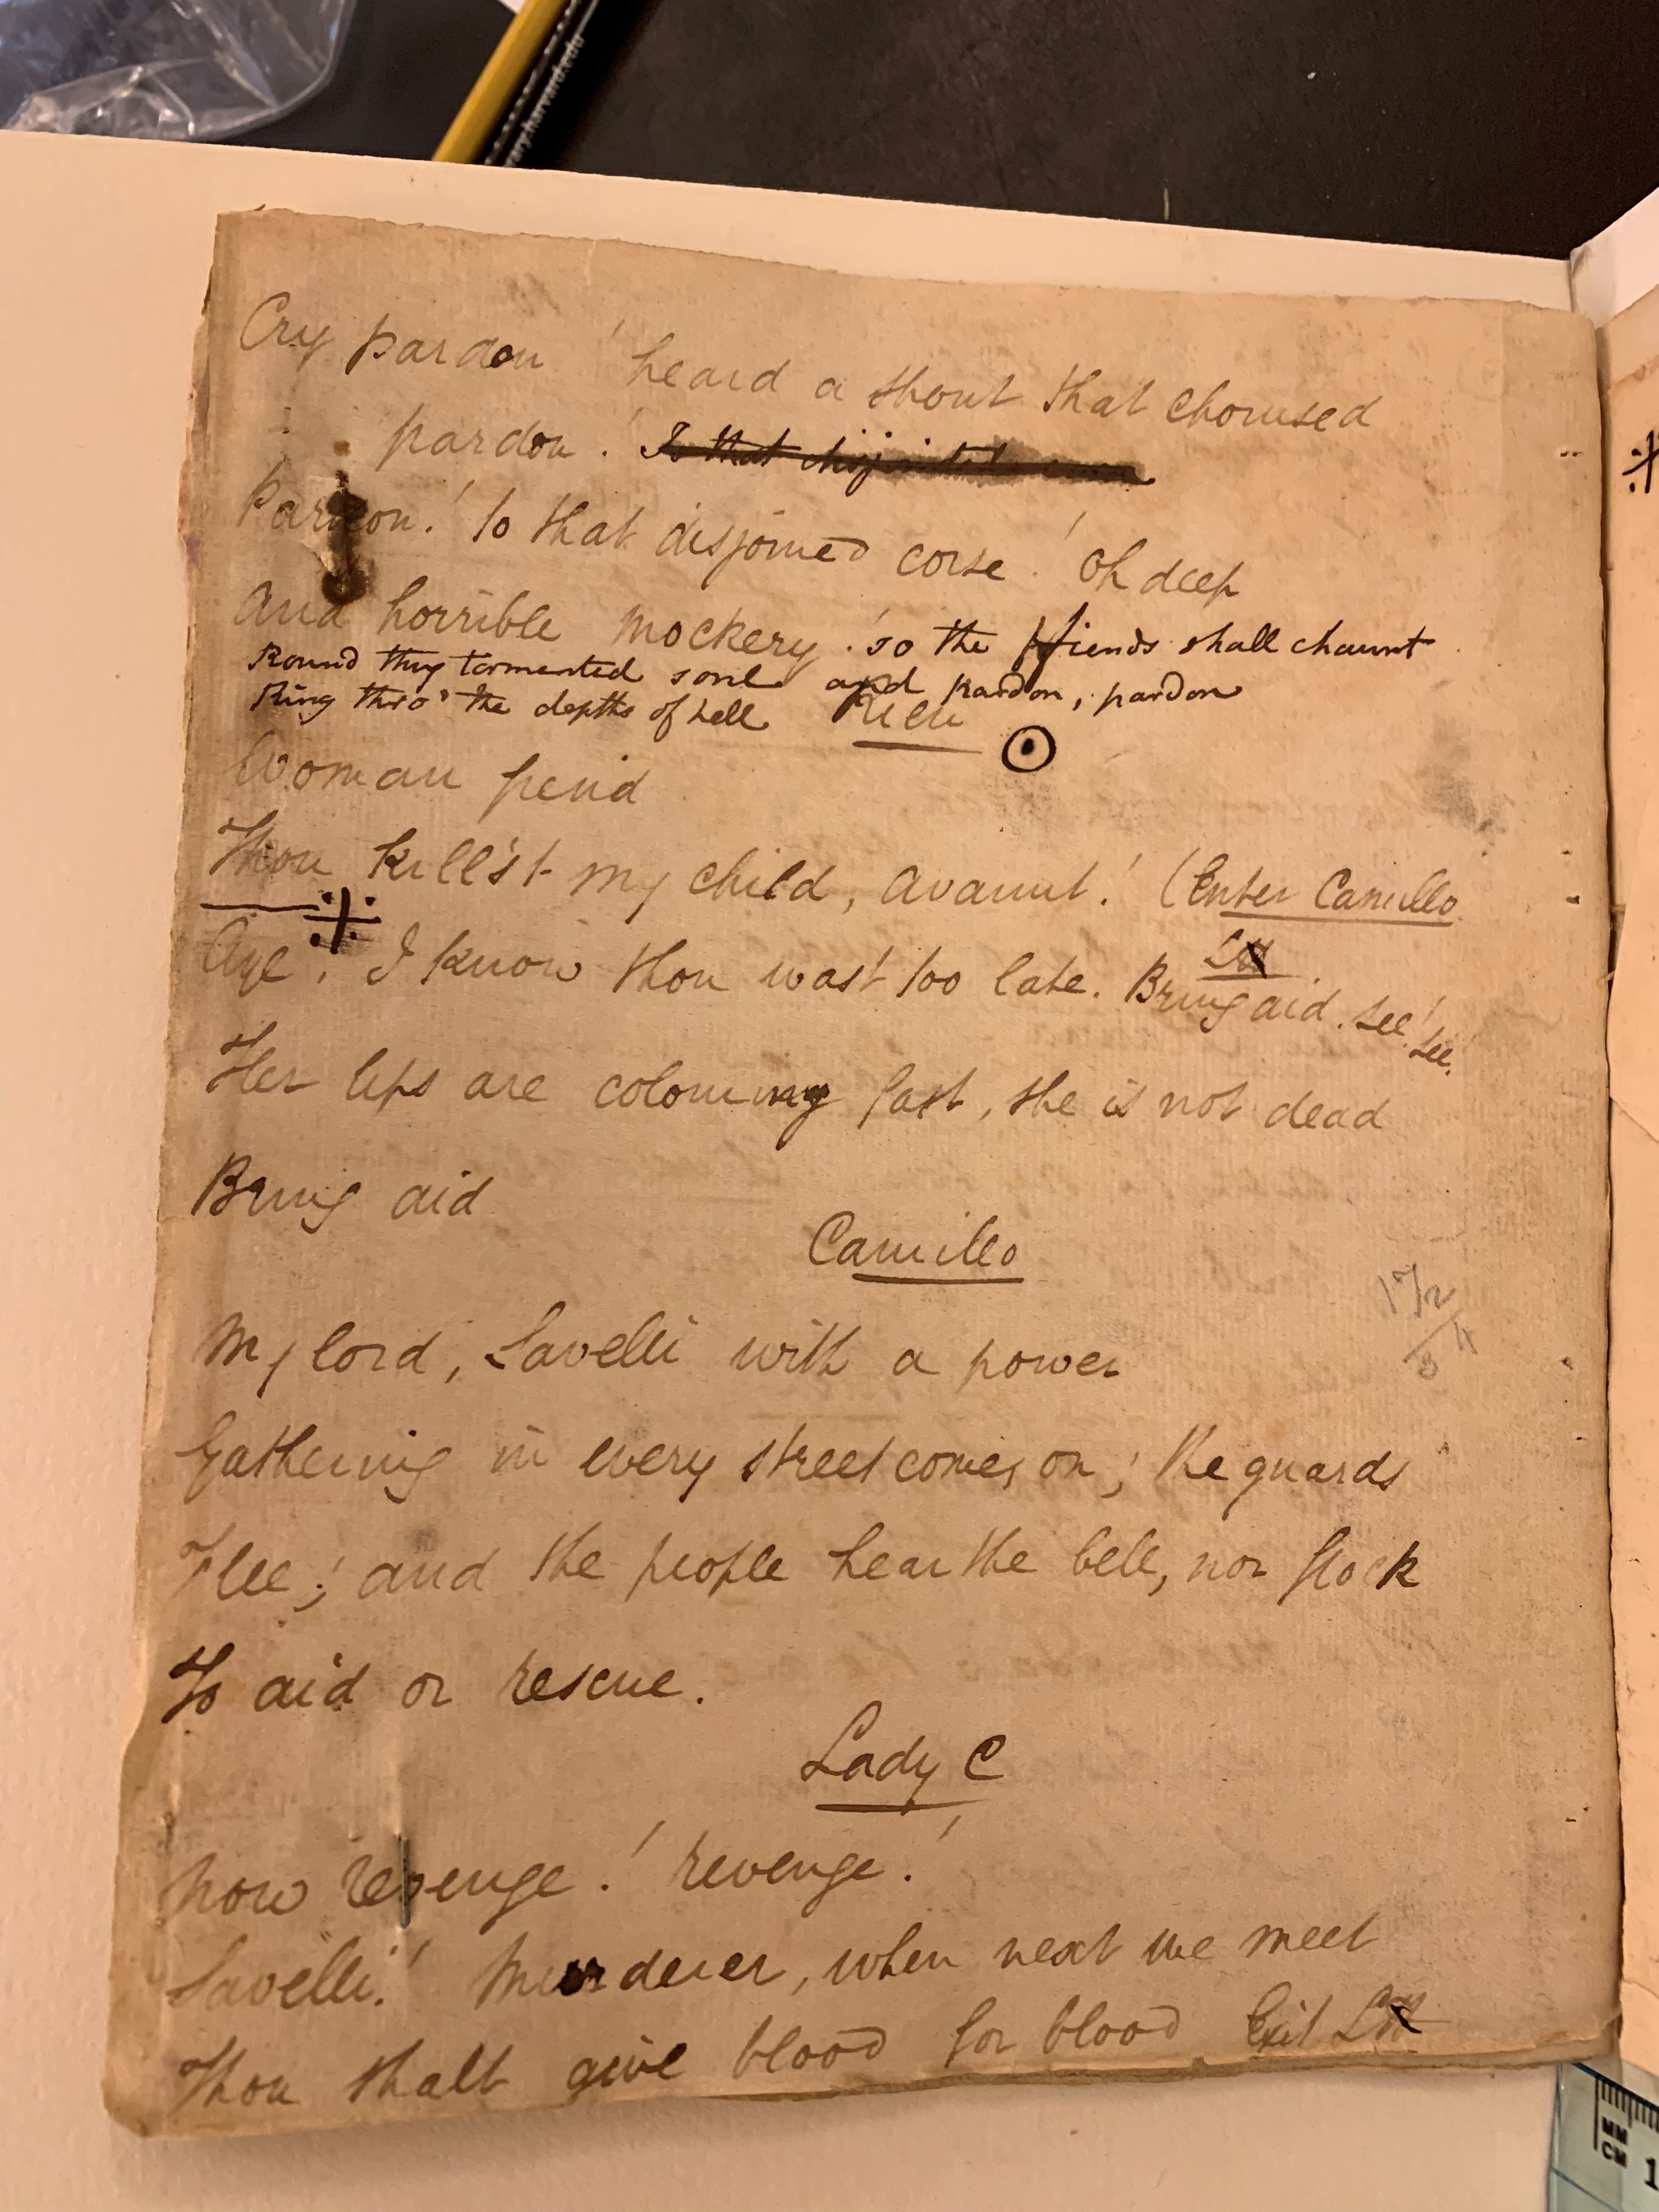 ary.harvard.edu
Cry pardon! heard a shout that chorused
pardon! To that disjointed
Pardon! to that disjoined corse! Oh deep
And horrible mockery! so the fiends shall chaunt
Round thy tormented soul and pardon, pardon
Ring thro' the depths of hell
Rien
Woman fiend
Thou kill'st my child, avaunt! (Enter Camillo
Aye, I know thou wast too late. Bring aid. See! see.
Her lips are colouring fast, she is not dead
Bring aid
Camillo
My lord, Savelli with a power
Gathering in every street comes on; the guards
Flee; and the people hear the bell, nor flock
To aid or rescue.
Lady C
Now revenge! revenge!
Savelli! Murderer, when next we meet
Thou shalt give blood for blood Exit
MM
CM 1